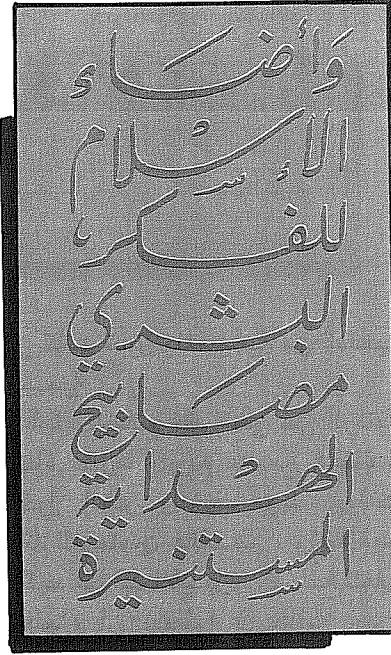 وَأضاء
الإسلام
للفكر
البشري
مصابيح
الهداية
المستنيرة